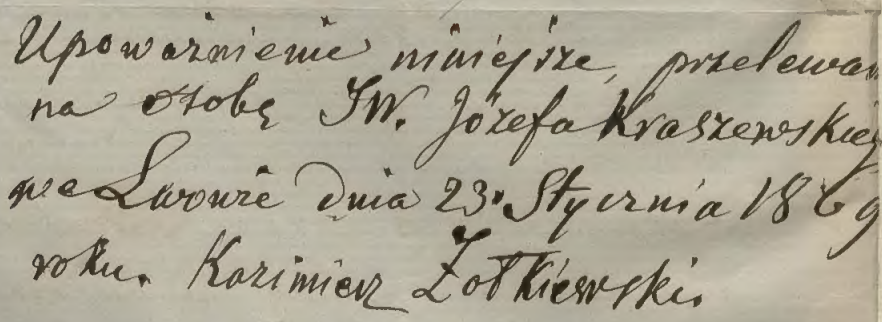 Upoważnienie niniejsze, przelewam
na osobę JW. Józefa Kraszewskieg
we Lwowie dnia 23. Stycznia 1869
roku. Kazimierz Żołkiewski.